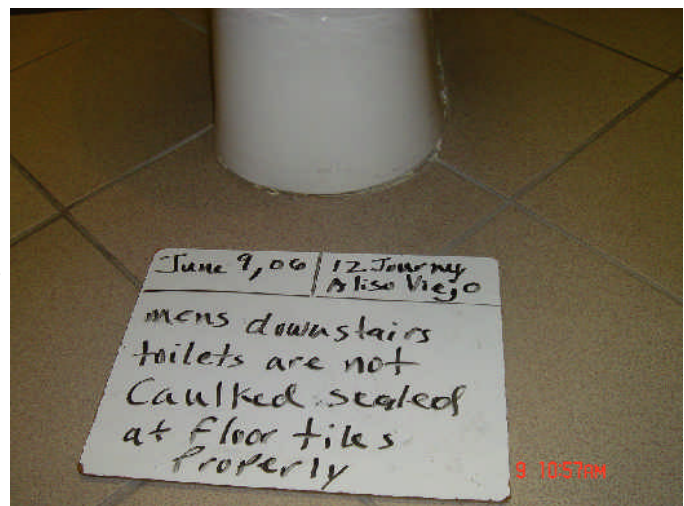 June 9, 06 12 Journy
Aliso Viejo
mens downstairs
toilets are not
Caulked sealed
at floor tiles
Properly
9 10:57AM